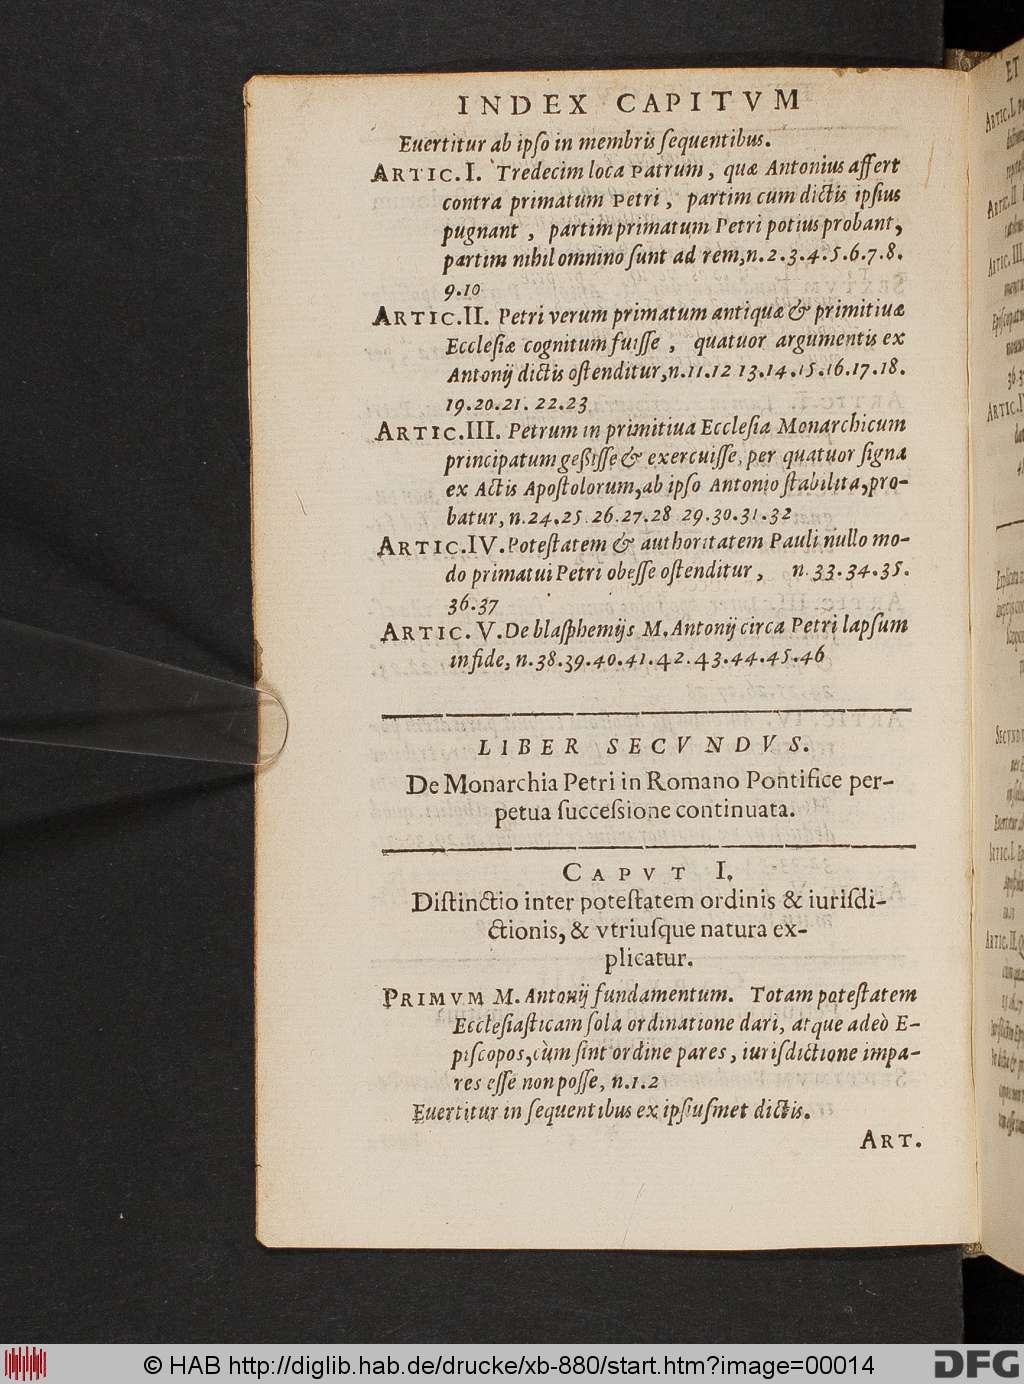 INDEX CAPITVM
Euertitur ab ipſo in membris ſequentibus.
ARTIC. I. Tredecim loca Patrum, quæ Antonius affert
contra primatum Petri, partim cum dictis ipſius
pugnant, partim primatum Petri potius probant,
partim nihil omnino ſunt ad rem, n. 2. 3. 4. 5. 6. 7. 8.
9. 10
ARTIC. II. Petri verum primatum antiquæ & primitiuæ
Eccleſiæ cognitum fuiſſe, quatuor argumentis ex
Antonij dictis oſtenditur, n. 11. 12 13. 14. 15. 16. 17. 18.
19. 20. 21. 22. 23
ARTIC. III. Petrum in primitiua Eccleſia Monarchicum
principatum geßiſſe & exercuiſſe, per quatuor ſigna
ex Actis Apoſtolorum, ab ipſo Antonio ſtabilita, pro-
batur, n. 24. 25. 26. 27. 28 29. 30. 31. 32
ARTIC. IV. Poteſtatem & authoritatem Pauli nullo mo-
do primatui Petri obeſſe oſtenditur, n. 33. 34. 35.
36. 37
ARTIC. V. De blaſphemijs M. Antonij circa Petri lapſum
in fide, n. 38. 39. 40. 41. 42. 43. 44. 45. 46
LIBER SECVNDVS.
De Monarchia Petri in Romano Pontifice per-
petua ſucceſsione continuata.
CAPVT I.
Diſtinctio inter poteſtatem ordinis & iuriſdi-
ctionis, & vtriuſque natura ex-
plicatur.
PRIMVM M. Antonij fundamentum. Totam poteſtatem
Eccleſiaſticam ſola ordinatione dari, atque adeò E-
piſcopos, cùm ſint ordine pares, iuriſdictione impa-
res eſſe non poſſe, n. 1. 2
Euertitur in ſequentibus ex ipſiuſmet dictis.
ART.
© HAB http://diglib.hab.de/drucke/xb-880/start.htm?image=00014
DFG